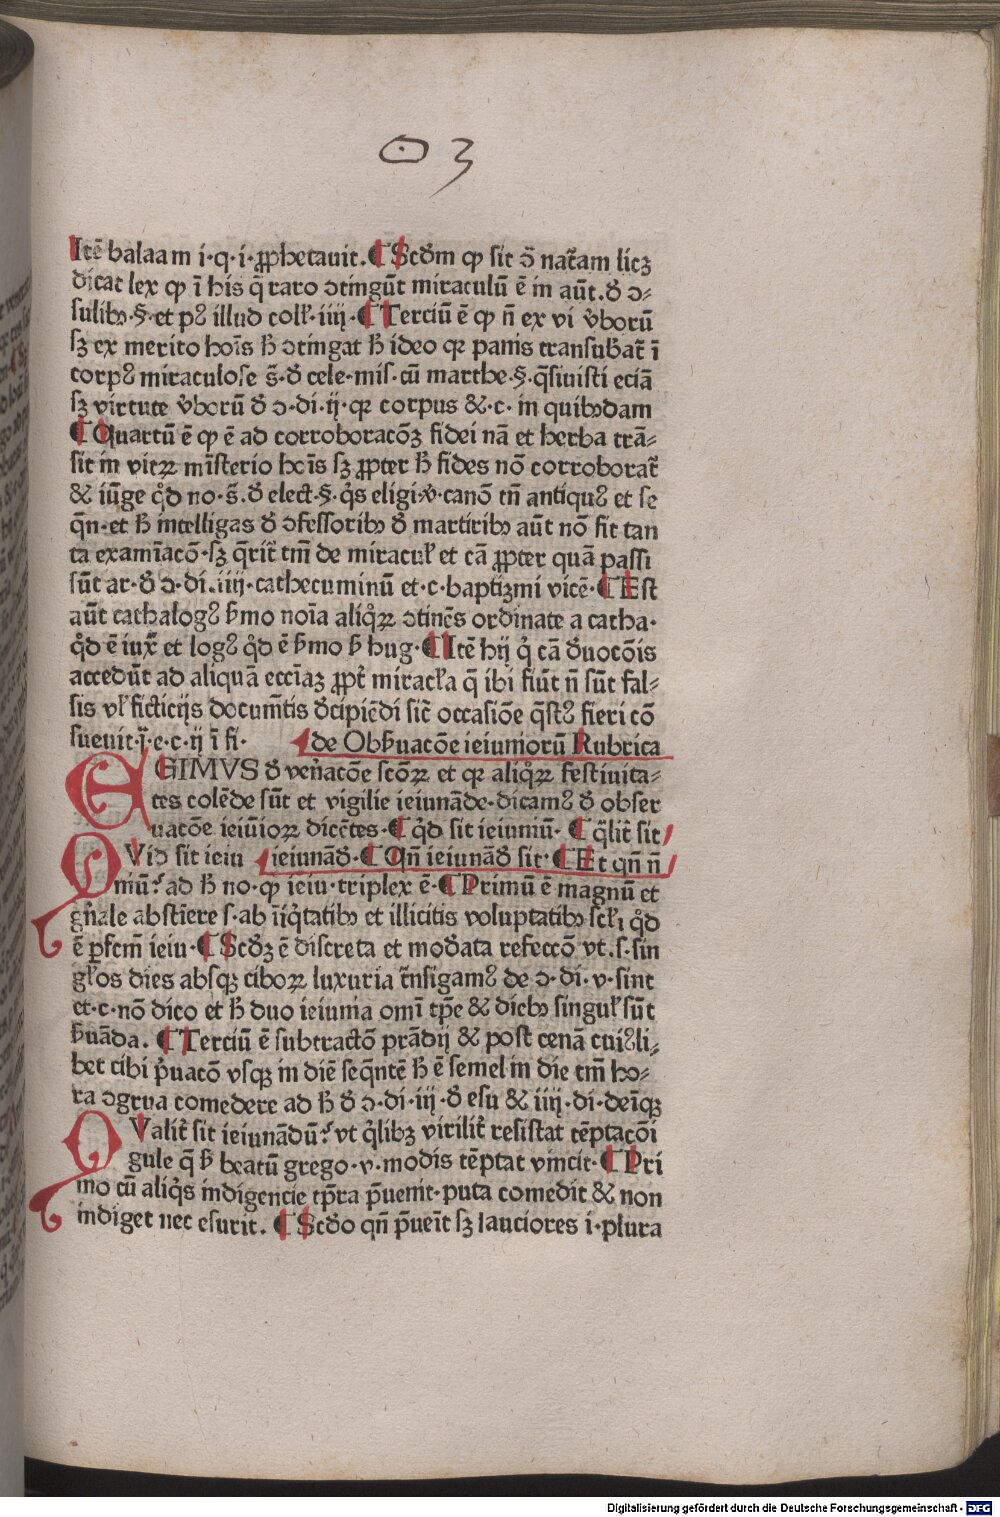 03
Itē balaam i·q·i·ꝓphetauit. ¶ Scd̄m ꝙ sit ↄ̄ nat̄am licꝫ
dicat lex ꝙ ī his q̄ raro ↄtingūt miraculū ē in aūt.d̄ ↄ-
sulibꝫ·§·et pꝰ illud coll̄·iiij·¶ Terciū ē ꝙ n̄ ex vi v̄borū
sꝫ ex merito hoīs h̄ ↄtingat h̄ ideo qꝛ panis transub̄at̄ ī
corpꝰ miraculose s̄·d̄ cele·mis·cū marthe·§·q̄siuisti eciā
sꝫ virtute v̄borū d̄ ↄ·di·ij·qꝛ corpus &·c· in quibꝫdam
¶ Quartū ē ꝙ ē ad corroboracōꝫ fidei nā et herba trā-
sit in vitꝝ mīsterio hoīs sꝫ ꝓpter h̄ fides nō corroborat̄
& iūge qd̄ no·s̄·d̄ elect·§·q̄s eligi·v̄·canō tn̄ antiquꝰ et se
q̄n·et h̄ intelligas d̄ ↄfessoribꝫ d̄ martiribꝫ aūt nō fit tan
ta examīacō·sꝫ q̄rit̄ tm̄ de miracul̄ et cā ꝓpter quā passi
sūt ar·d̄ ↄ·di·iiij·cathecuminū et·c·baptizmi vicē·¶ Est
aūt cathalogꝰ h̄mo noīa aliq̄ꝝ ↄtinēs ordinate a catha·
qd̄ ē iuxͣ et logꝰ qd̄ ē h̄mo h̄ hug·¶ Itē hij q̄ cā d̄uocōis
accedūt ad aliquā eccīaꝫ ꝓpt̄ miracl̄a q̄ ibi fiūt n̄ sūt fal-
sis vl̄ ficticijs docum̄tis d̄cipiēdi sic̄ occasiōe q̄stꝰ fieri cō
sueuit·j̄·e·c·ij ī fi·
de Obs̄uacōe ieiuniorū Rubrica
EGIMVS d̄ ven̄acōe scōꝝ et qꝛ aliq̄ꝝ festiuita-
tes colēde sūt et vigilie ieiunāde·dicamꝰ d̄ obser
uacōe ieiūioꝝ dicētes·¶ qd̄ sit ieiuniū· ¶ q̄lit̄ sit
ieiunād̄·¶ Qn̄ ieiunād̄ sit·¶ Et qn̄ n̄
QVid sit ieiu
niū? ad h̄ no·ꝙ ieiu·triplex ē·¶ Primū ē magnū et
gn̄ale abstīere s·ab īiq̄tatibꝫ et illicitis voluptatibꝫ scl̄i qd̄
ē ꝑfcm̄ ieiu·¶ Scd̄ꝫ ē discreta et mod̄ata refeccō vt·s·sin
gl̄os dies absqꝫ ciboꝝ luxuria t̄nsigamꝰ de ↄ·di·v·sint
et·c·nō dico et h̄ duo ieiunia omī tp̄e & diebꝫ singul̄ sūt
s̄uāda. ¶ Terciū ē subtractō prādij & post cenā cuiꝰli-
bet cibi p̄uacō vsqꝫ in diē seq̄ntē h̄ ē semel in die tm̄ ho-
ra ↄgrua comedere ad h̄ d̄ ↄ·di·iij·d̄ esu & iiij·di·deīqꝫ
QValit̄ sit ieiunādū? vt q̄libꝫ virilit̄ resistat tēptacōi
gule q̄ h̄ beatū grego·v·modis tēptat vincit·¶ Pri
mo cū aliq̄s indigencie tp̄ra p̄uenit·puta comedit & non
indiget nec esurit. ¶ Scd̄o qn̄ p̄ueīt sꝫ lauciores i·plura
Digitalisierung gefördert durch die Deutsche Forschungsgemeinschaft - DFG